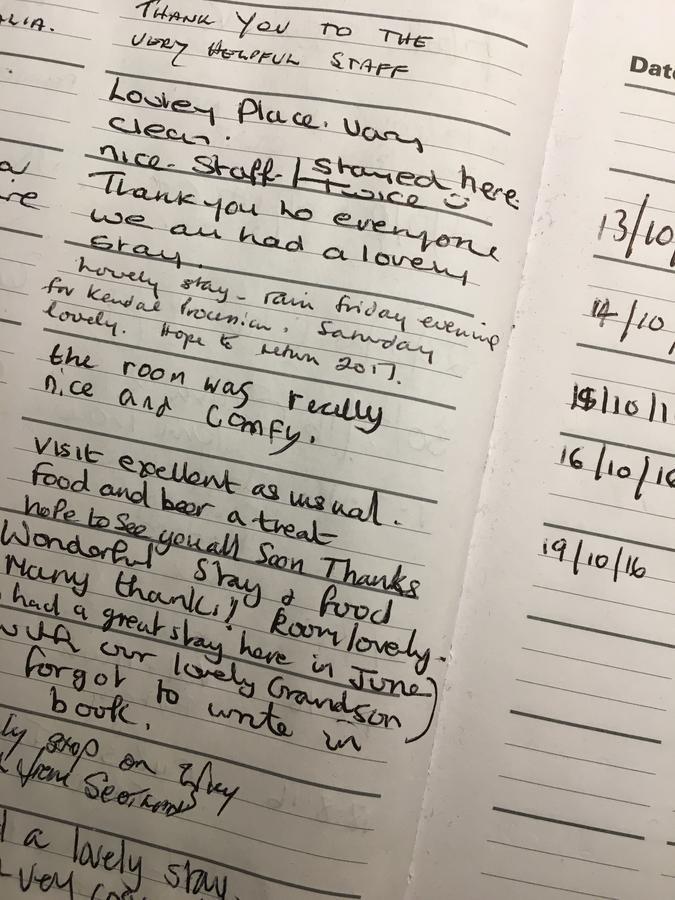 ALIA.
THANK YOU TO THE
VERY HELPFUL STAFF
Lovley Place. Vary
clean.
nice. Staff. I stayed here
twice
Thank you to everyone
we all had a lovely
stay.
Lovely stay - rain friday evening
for Kendal Procession. Saturday
lovely. Hope to return 2017.
the room was really
nice and comfy.
Visit excellent as usual.
food and beer a treat
hope to see you all Soon Thanks
Wonderful Stay & food
Many thanks!! Room lovely.
had a great stay here in June
with our lovely Grandson)
forgot to write in
book.
stop on way
from
a lovely stay.
very
Date
13/10
14/10
15/10/1
16/10/16
19/10/16